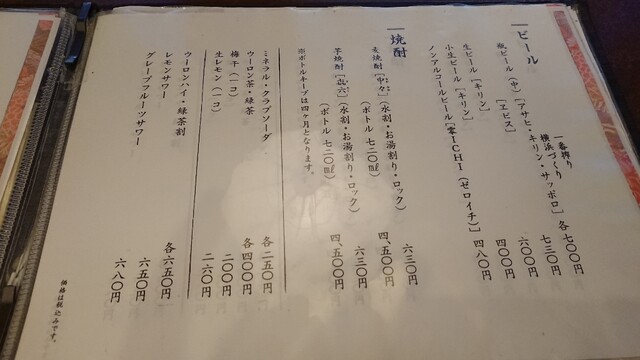 ビール
一番搾り
横浜づくり
瓶ビール(中)[アサヒ・キリン・サッポロ] 各七〇〇円
[エビス] 七三〇円
生ビール[キリン] 六〇〇円
小生ビール[キリン] 四〇〇円
ノンアルコールビール[零ICHI(ゼロイチ)] 四八〇円
焼酎
麦焼酎[中々](水割・お湯割り・ロック) 六三〇円
(ボトル 七二〇ml) 四、五〇〇円
芋焼酎[㐂六](水割・お湯割り・ロック) 六三〇円
(ボトル 七二〇ml) 四、五〇〇円
※ボトルキープは四ケ月となります。
ミネラル・クラブソーダ 各二五〇円
ウーロン茶・緑茶 各四〇〇円
梅干(一コ) 二〇〇円
生レモン(一コ) 二六〇円
ウーロンハイ・緑茶割 各六五〇円
レモンサワー 六五〇円
グレープフルーツサワー 六八〇円
価格は税込みです。